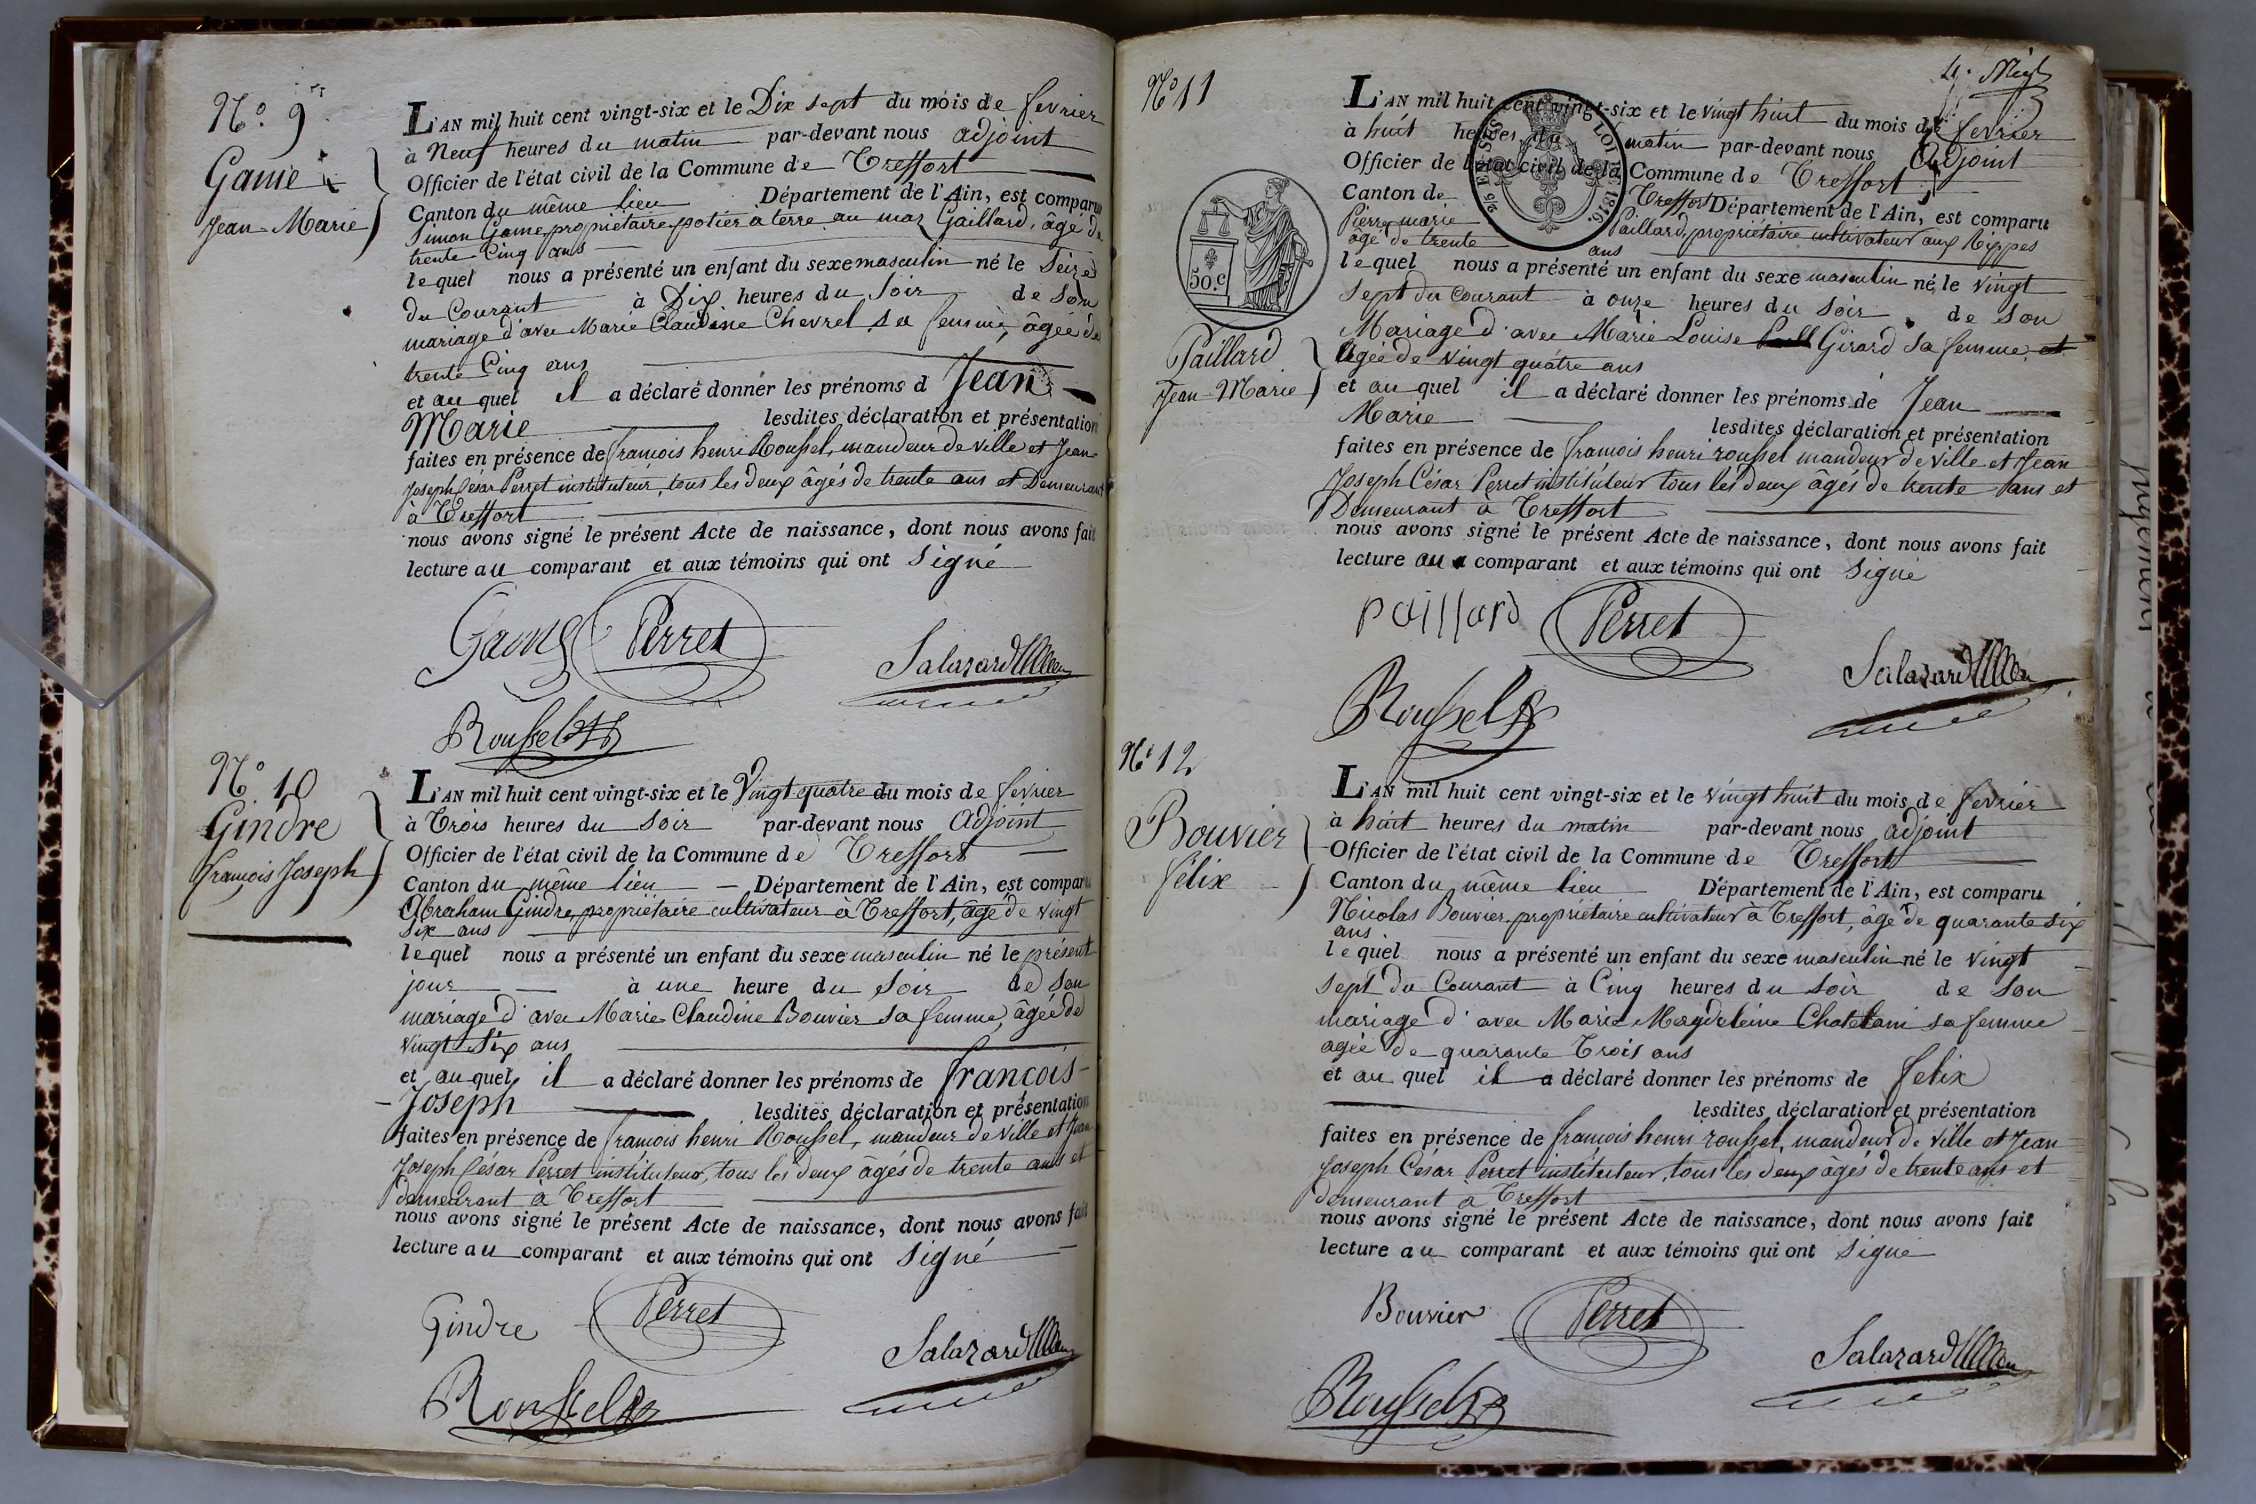 N.º 9
Game
Jean-Marie
L'AN mil huit cent vingt-six et le Dix sept du mois de fevrier
à Neuf heures du matin par-devant nous adjoint
Officier de l'état civil de la Commune de Treffort
Canton du même lieu Département de l'Ain, est comparu
Simon Game, propriétaire potier a terre au mas Gaillard, âgé de
trente Cinq ans
lequel nous a présenté un enfant du sexe masculin né le Seize
du Courant à Dix heures du Soir de son
mariage d'avec Marie Claudine Chevrel sa femme, âgée de
trente Cinq ans
et au quel il a déclaré donner les prénoms d Jean
Marie lesdites déclaration et présentation
faites en présence de françois henri Roussel, mandeur de ville et Jean
Joseph César Perret instituteur, tous les deux âgés de trente ans et Demeurant
à Treffort
nous avons signé le présent Acte de naissance, dont nous avons fait
lecture au comparant et aux témoins qui ont Signé
Game Perret
Salazard
Roussel
N.º 10
Gindre
françois Joseph
L'AN mil huit cent vingt-six et le Vingt quatre du mois de fevrier
à Trois heures du Soir par-devant nous Adjoint
Officier de l'état civil de la Commune de Treffort
Canton du même lieu Département de l'Ain, est comparu
Abraham Gindre, propriétaire cultivateur à Treffort, âgé de vingt
Six ans
lequel nous a présenté un enfant du sexe masculin né le présent
jour à une heure du Soir de Son
mariage d'avec Marie Claudine Bouvier sa femme, âgée de
vingt Six ans
et au quel il a déclaré donner les prénoms de françois-
-Joseph lesdites déclaration et présentation
faites en présence de françois henri Roussel, mandeur de ville et Jean
Joseph César Perret instituteur, tous les deux âgés de trente ans et
demeurant à Treffort
nous avons signé le présent Acte de naissance, dont nous avons fait
lecture au comparant et aux témoins qui ont Signé
Gindre Perret
Salazard
Roussel
N.º 11
50.c
LOI DE 1816.
Paillard
Jean-Marie
L'AN mil huit cent vingt-six et le vingt huit du mois de fevrier
à huit heures du matin par-devant nous Adjoint
Officier de l'état civil de la Commune de Treffort
Canton de Treffort Département de l'Ain, est comparu
Pierre marie Paillard, propriétaire cultivateur aux Rippes
âgé de trente ans
lequel nous a présenté un enfant du sexe masculin né le vingt
Sept du Courant à onze heures du Soir de Son
Mariage d'avec Marie Louise Girard Sa femme, et
Agée de vingt quatre ans
et au quel il a déclaré donner les prénoms de Jean
Marie lesdites déclaration et présentation
faites en présence de françois henri roussel mandeur de ville et Jean
Joseph César Perret instituteur tous les deux âgés de trente ans et
Demeurant à Treffort
nous avons signé le présent Acte de naissance, dont nous avons fait
lecture au comparant et aux témoins qui ont Signé
Paillard Perret
Salazard
Roussel
N.º 12
Bouvier
félix
L'AN mil huit cent vingt-six et le vingt huit du mois de fevrier
à huit heures du matin par-devant nous adjoint
Officier de l'état civil de la Commune de Treffort
Canton du même lieu Département de l'Ain, est comparu
Nicolas Bouvier, propriétaire cultivateur à Treffort, âgé de quarante six
ans
lequel nous a présenté un enfant du sexe masculin né le vingt
Sept du Courant à Cinq heures du Soir de Son
mariage d'avec Marie Magdeleine Chatelain sa femme
agée de quarante Trois ans
et au quel il a déclaré donner les prénoms de felix
lesdites déclaration et présentation
faites en présence de françois henri roussel, mandeur de ville et Jean
Joseph César Perret instituteur, tous les deux âgés de trente ans et
demeurant à Treffort
nous avons signé le présent Acte de naissance, dont nous avons fait
lecture au comparant et aux témoins qui ont Signé
Bouvier Perret
Salazard
Roussel